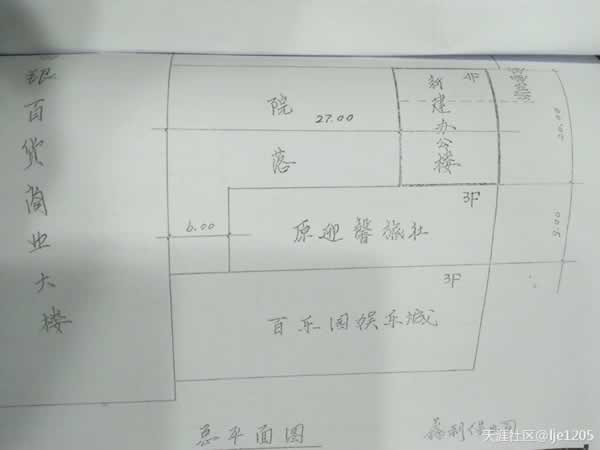 银百货商业大楼
院落
27.00
新建办公楼
4F
20.00
9.00
6.00
原迎馨旅社
3F
3F
百乐园娱乐城
总平面图
天涯社区@lje1205